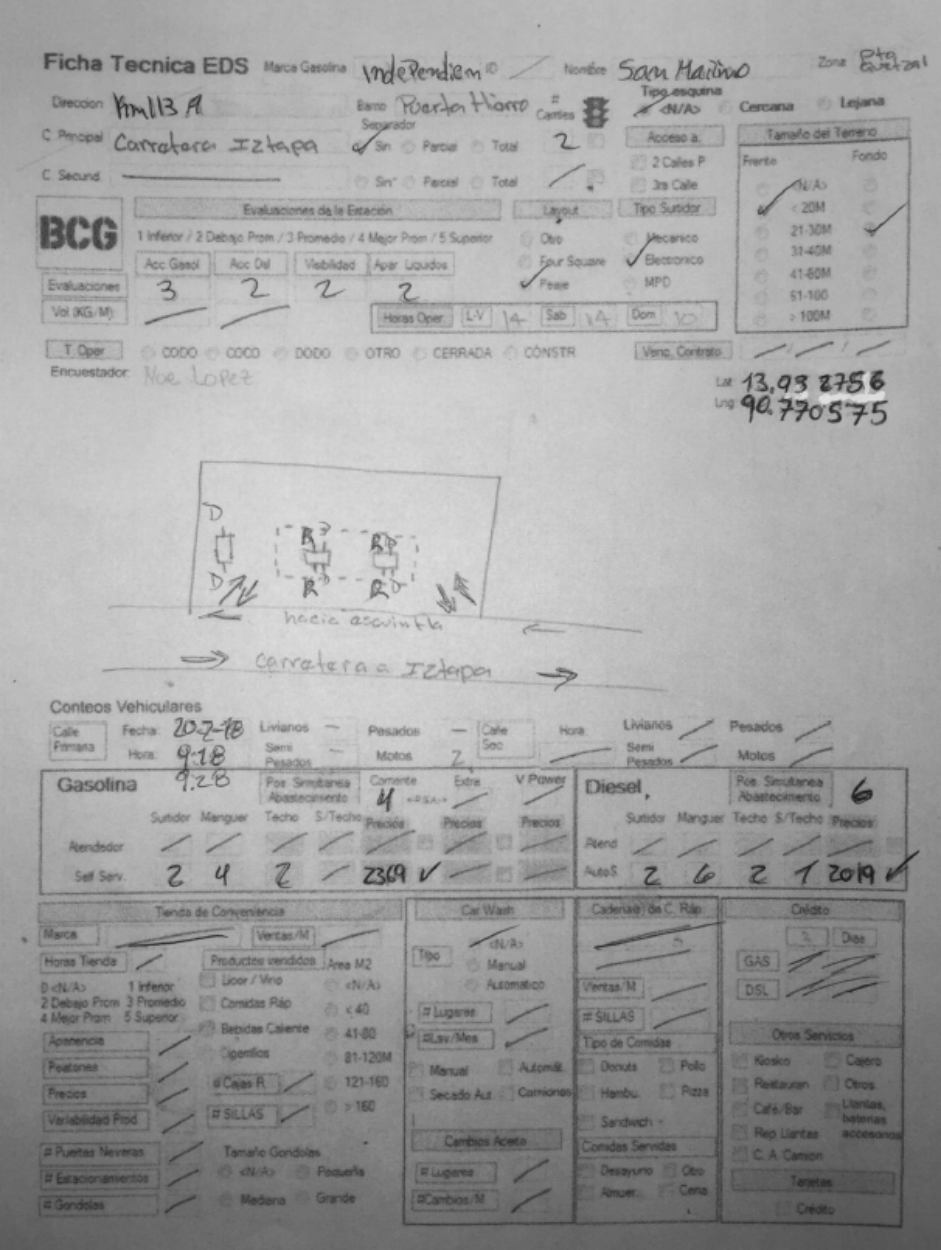 Ficha Tecnica EDS Marca Gasolina Independien ID Nombre San Martino Zona Pto Quetzal
Direccion Km 113 A Barrio Puerta Hierro # Carriles Tipo esquina <N/A> Cercana Lejana
C Principal Carretera Iztapa Separador Sin Parcial Total 2 Acceso a: Tamaño del Terreno
2 Calles P Frente Fondo
C Secund. Sin Parcial Total 3ra Calle <N/A>
BCG Evaluaciones de la Estación Layout Tipo Surtidor < 20M
1 Inferior / 2 Debajo Prom / 3 Promedio / 4 Mejor Prom / 5 Superior Otro Mecanico 21-30M
Acc Gasol Acc Dsl Visibilidad Apar. Liquidos Four Square Electronico 31-40M
Evaluaciones 3 2 2 2 Peaje MPD 41-60M
61-100
Vol (KG/M): Horas Oper. L-V 14 Sab 14 Dom 10 > 100M
T. Oper CODO COCO DODO OTRO CERRADA CONSTR Venc. Contrato / / /
Encuestador: Noe Lopez
Lat 13.932756
Lng 90.770575
D
B D B D
D R D R D
hacia escuintla
carretera a Iztapa
Conteos Vehiculares
Calle Primaria Fecha: 20-7-18 Livianos - Pesados - Calle Sec Hora: Livianos Pesados
Hora: 9:18 Semi Pesados - Motos 2 Semi Pesados Motos
9:28
Gasolina Pos Simultanea Abastecimiento Corriente 4 Extra V Power Diesel Pos. Simultanea Abastecimiento 6
Surtidor Manguer Techo S/Techo Precios Precios Precios Surtidor Manguer Techo S/Techo Precios
Atendedor Atend
Self Serv. 2 4 2 2369 ✓ AutoS 2 6 2 1 2019 ✓
Tienda de Conveniencia Car Wash Cadena(s) de C. Ráp Crédito
Marca Ventas/M <N/A> Dias
Horas Tienda Productos vendidos Area M2 Tipo Manual GAS
0 <N/A> 1 Inferior Licor / Vino <N/A> Automatico Ventas/M DSL
2 Debajo Prom 3 Promedio Comidas Ráp < 40 # Lugares # SILLAS
4 Mejor Prom 5 Superior Bebidas Caliente 41-80 #Lav/Mes Tipo de Comidas Otros Servicios
Apariencia Cigarrillos 81-120M Manual Automát. Donuts Pollo Kiosko Cajero
Peatones # Cajas R 121-160 Secado Aut Camiones Hambu. Pizza Restauran Otros
Precios # SILLAS > 160 Sandwich Café/Bar Llantas, baterias accesorios
Variabilidad Prod Cambios Aceite Comidas Servidas Rep Llantas
# Puertas Neveras Tamaño Gondolas # Lugares Desayuno Otro C. A. Camion
# Estacionamientos <N/A> Pequeña #Cambios/M Almuer. Cena Tarjetas
# Gondolas Mediana Grande Crédito